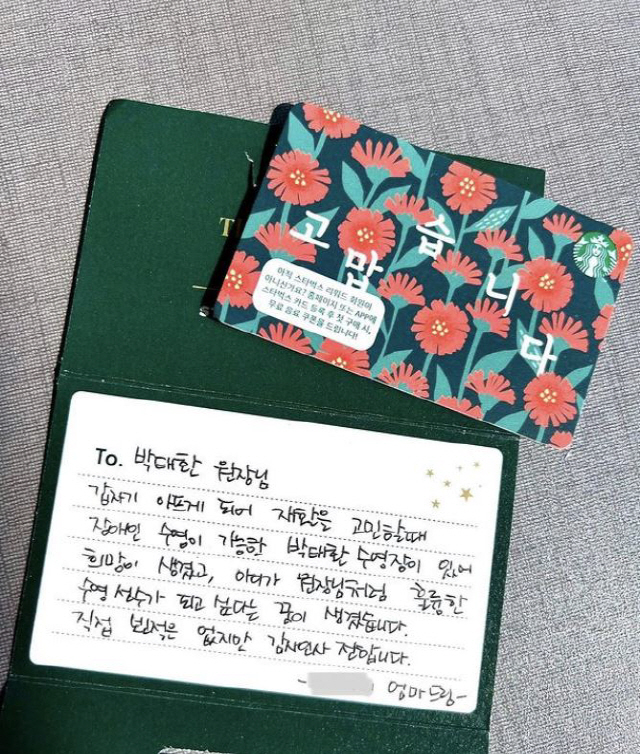 고맙습니다
아직 스타벅스 리워드 회원이
아니신가요? 홈페이지 또는 APP에
스타벅스 카드 등록 후 첫 구매 시,
무료 음료 쿠폰을 드립니다!
To. 박태환 원장님
갑자기 아프게 되어 재활을 고민할때
장애인 수영이 가능한 박태환 수영장이 있어
희망이 생겼고, 아이가 원장님처럼 훌륭한
수영선수가 되고 싶다는 꿈이 생겼습니다.
직접 뵌적은 없지만 감사인사 전합니다.
- 엄마드림-